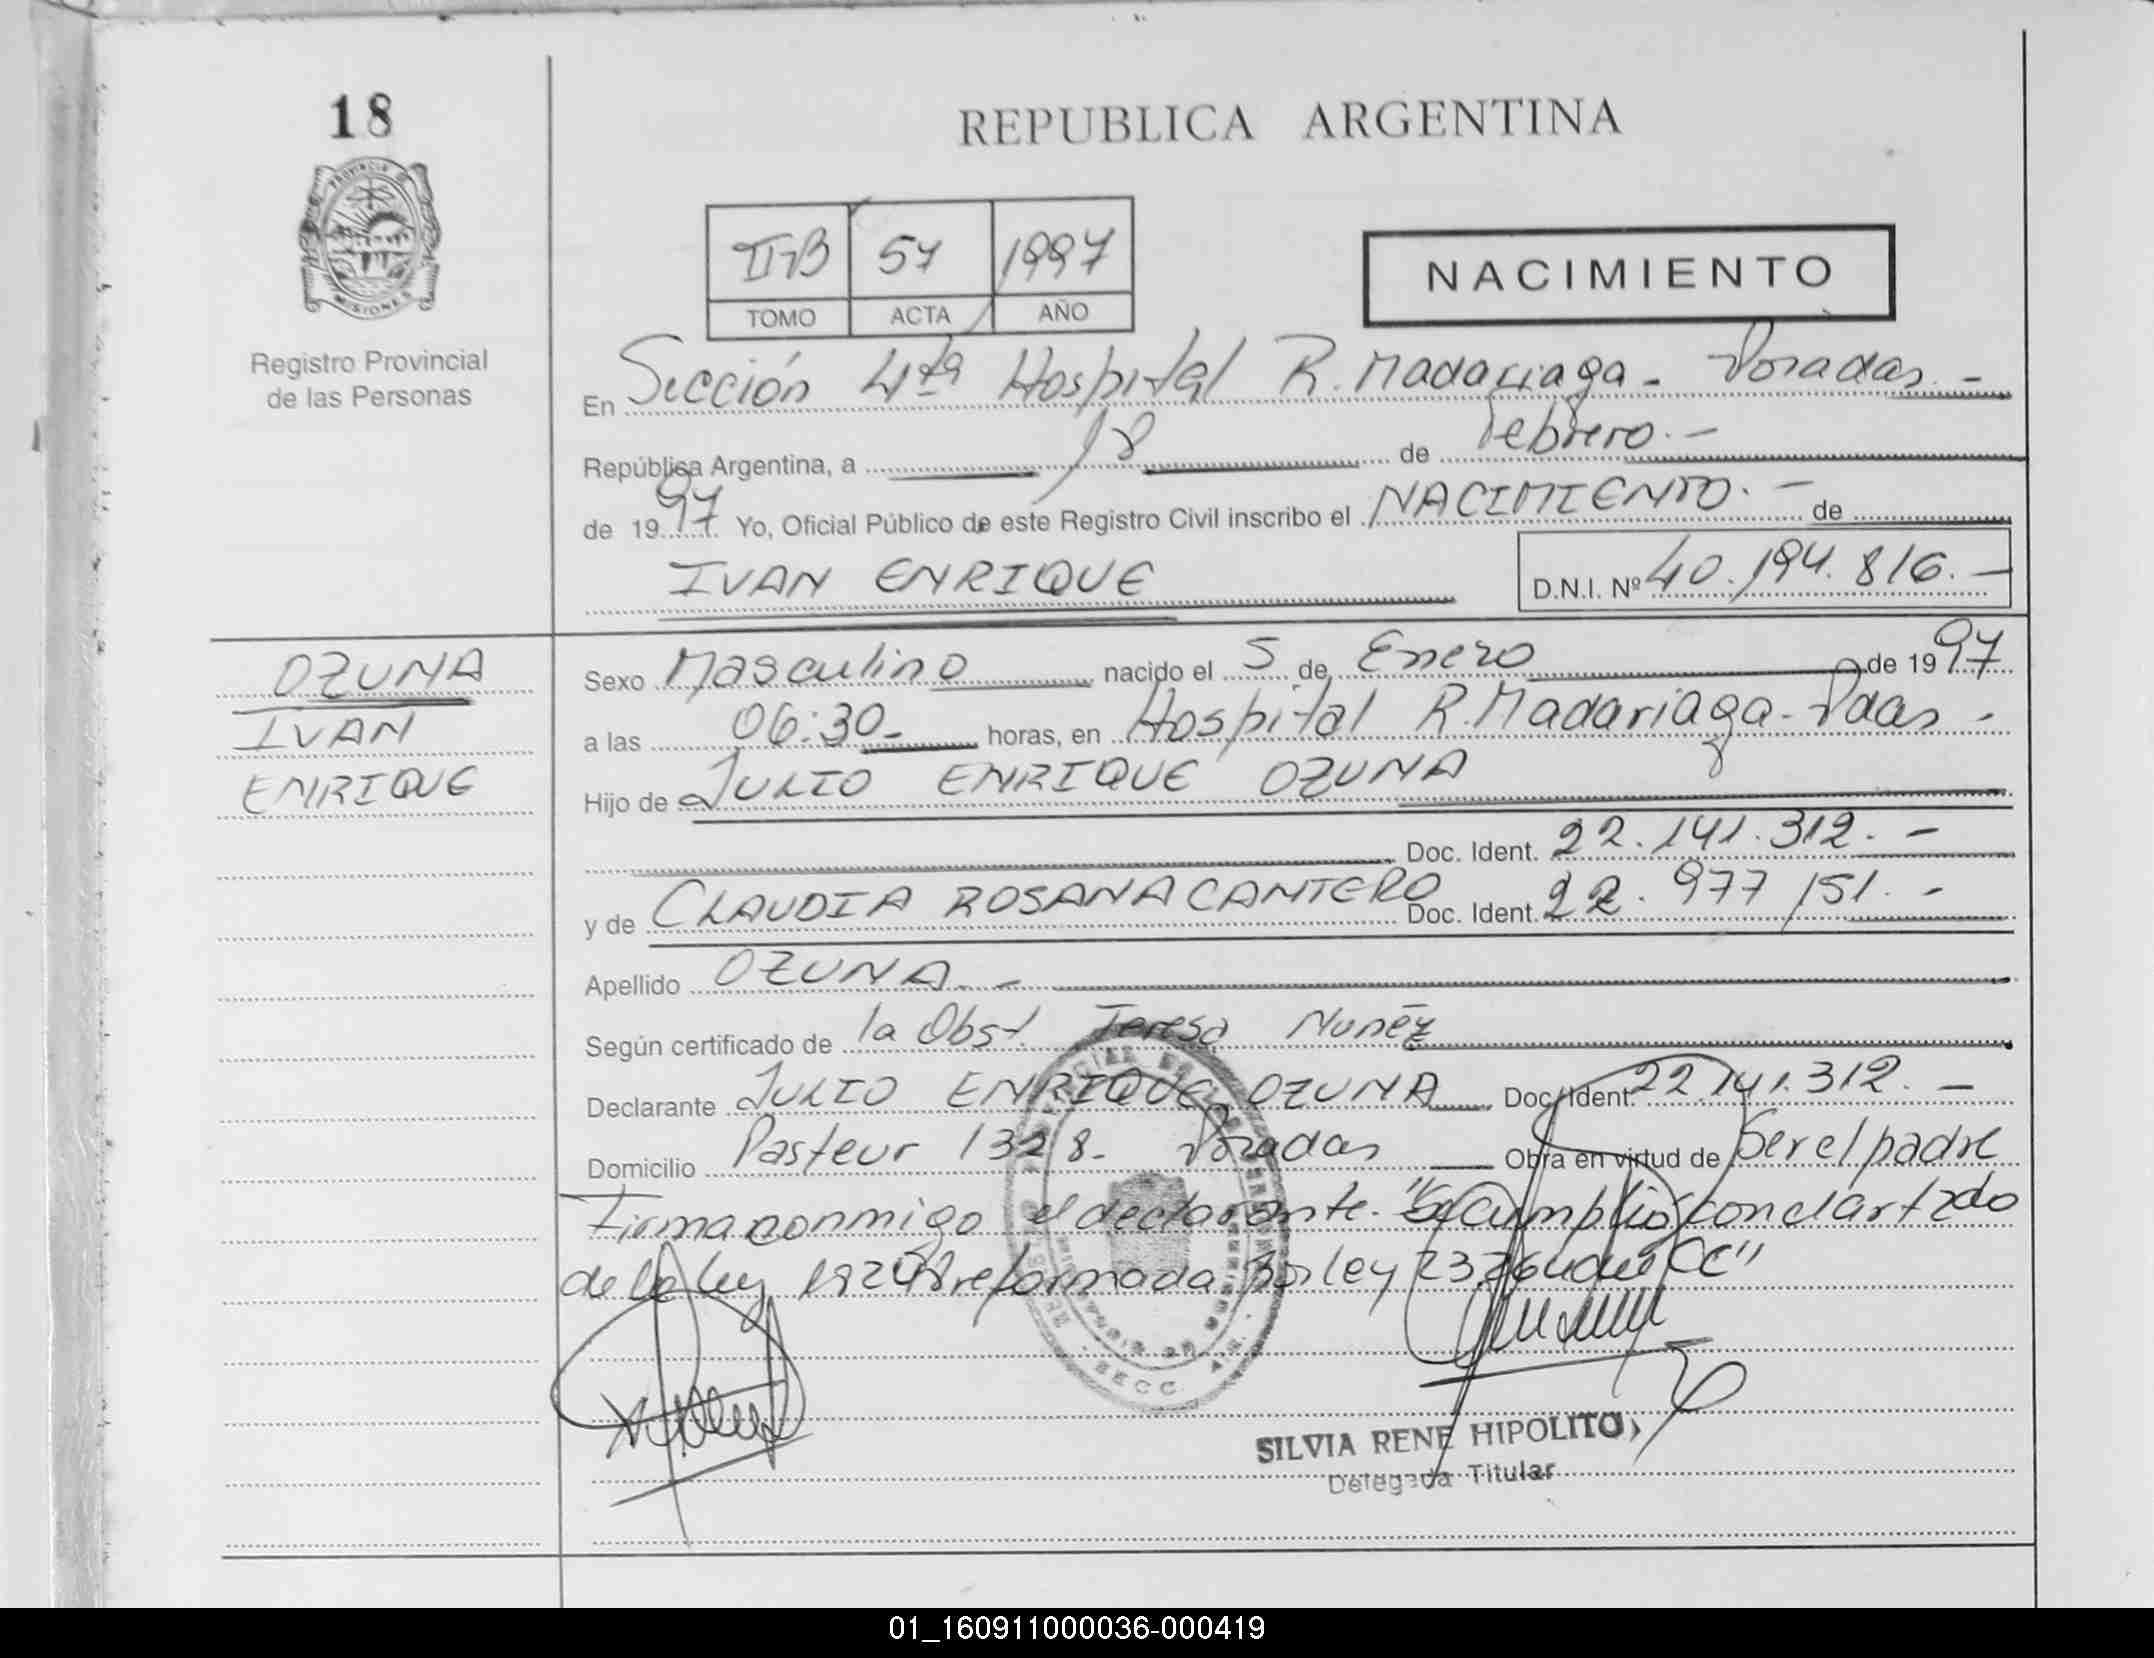 18
REPUBLICA ARGENTINA
PROVINCIA DE
MISIONES
Registro Provincial
de las Personas
II-B 57 1997
TOMO ACTA AÑO
NACIMIENTO
En Sección 4ta Hospital R. Madariaga - Posadas. -
República Argentina, a 18 de Febrero. -
de 1997. Yo, Oficial Público de este Registro Civil inscribo el NACIMIENTO. - de
IVAN ENRIQUE D.N.I. Nº 40.194.816. -
OZUNA
IVAN
ENRIQUE
Sexo Masculino nacido el 5 de Enero de 1997
a las 06:30 - horas, en Hospital R. Madariaga - Pdas -
Hijo de JULIO ENRIQUE OZUNA
Doc. Ident. 22.141.312. -
y de CLAUDIA ROSANA CANTERO Doc. Ident. 22.977 151. -
Apellido OZUNA. -
Según certificado de la Obst. Teresa Nuñez
Declarante JULIO ENRIQUE OZUNA Doc. Ident. 22.141.312. -
Domicilio Pasteur 1328 - Posadas Obra en virtud de Ser el padre
Firma conmigo el declarante. "Se cumplió con el art 2do
de la ley 18248 reformada por ley 23.264 del CC"
SECC.
SILVIA RENE HIPOLITO
Delegada Titular
01_160911000036-000419